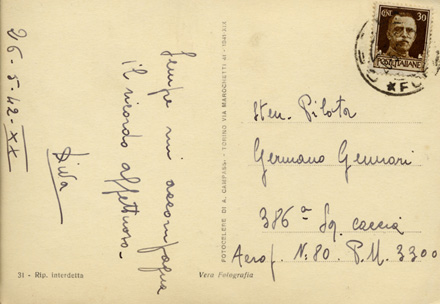 26-5-42-XX
Sempre mi accompagna
il ricordo affettuoso.
Diva
FOTOCELERE DI A. CAMPASSI - TORINO VIA MAROCCHETTI 41 - 1941-XIX
CENT. 30
POSTE ITALIANE
Sten. Pilota
Germano Gennari
386ª Sq. caccia
Aerop. N. 80. P.M. 3300
31 - Rip. interdetta
Vera Fotografia